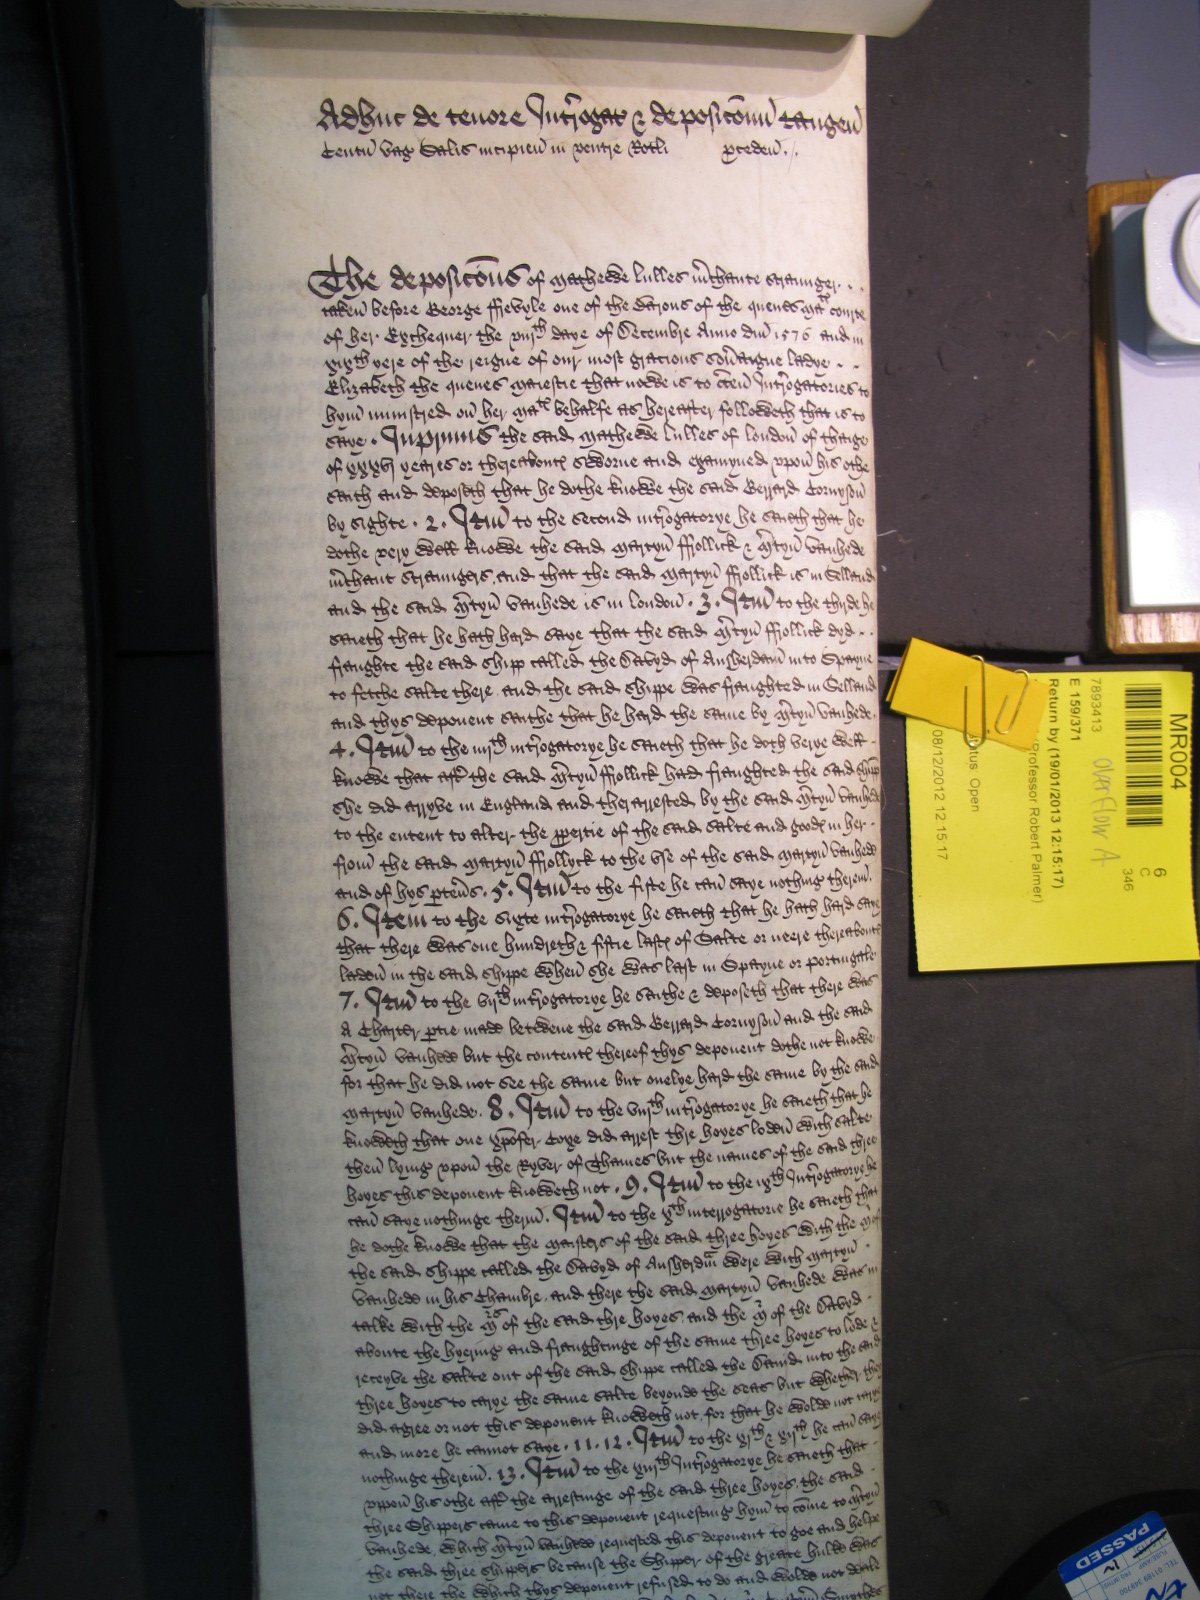 Adhuc de tenore Introgat & deposiconu tangen
Centu vag Salis incipien in ventre Rotli pceden
The deposicons of Mathewe Lulles mchante straunger
taken before George Frevyle one of the Barons of the quenes Matis courte
of her Exchequer the viijth daye of Decembre Anno dni 1576 and in
xixth yere of the reigne of our most gracious sovaigne ladye
Elizabeth the quenes maiestie that nowe is to cten Intrrogatories to
hym ministred on her Matis behalfe as hereafter followeth that is to
saye. Inprimis the said Mathewe Lulles of London of thage
of yeares or thereaboute sworne and examyned vppon his othe
saith and deposeth that he dothe knowe the said Gerrard Cornyson
by sighte. 2. Itm to the second intrrogatorye he saieth that he
dothe very well knowe the said Martyn ffrollick & Mtyn Vanhede
mchant straungers, and that the said Martyn ffrollick is in Selland
and the said Mtyn Vanhede is in London. 3. Itm to the thyrde he
saieth that he hath hard saye that the said Mtyn ffrollick dyd
fraughte the said shipp called the Davyd of Amsterdam into Spayne
to fetche salte there, and the said shippe was fraughted in Selland
and thys deponent saithe that he hard the same by Mtyn Vanhede.
4. Itm to the iiijth intrrogatorye he saieth that he doth verye well
knowe that aft the said Mtyn ffrollick had fraughted the said shipp
she did arryve in England and ther arrested by the said Mtyn Vanhede
to the entent to alter the ppertie of the said salte and goode in her
from the said Martyn ffrollyck to the vse of the said Martyn Vanhede
and of hys ptens. 5. Itm to the fifte he can saye nothing therein.
6. Item to the sixte intrrogatorye he saieth that he hath hard saye
that there was one hundreth & fiftie laste of Salte or neere thereaboute
laden in the said shippe when she was last in Spayne or Portingale
7. Itm to the vijth intrrogatorye he saithe & deposeth that there was
A Charter ptie made betwene the said Gerrard Cornyson and the said
Mtyn Vanhede but the contente thereof thys deponent dothe not knowe
for that he did not see the same but onelye hard the same by the said
Martyn Vanhede. 8. Itm to the viijth intrrogatorye he saieth that he
knoweth that one Xpofer Coye did arrest thre hoyes loden with salte
then lying vppon the Ryver of Thames but the names of the said three
hoyes this deponent knoweth not. 9. Itm to the ixth Intrrogatorye he
can saye nothinge therin. Itm to the xth interrogatorie he saieth that
he dothe knowe that the maisters of the said three hoyes with the Mr of
the said shippe called the Davyd of Amsterdam were with Martyn
Vanhede in his Chambre, and there the said Martyn Vanhede was in
talke with the Mrs of the said thre hoyes, and the Mr of the Davyd
aboute the hyering and fraughtinge of the same three hoyes to lode &
receyve the salte out of the said shippe called the David into the said
three hoyes to carye the same salte beyonde the seas but whether they
did agree or not this deponent knoweth not, for that he wolde not tarye
and more he cannot saye. 11. 12. Itm to the xjth & xijth he can saye
nothinge therein. 13. Itm to the xiijth Intrrogatorye he saieth that
vppon his othe aft the arrestinge of the said three hoyes, the said
three Shippers came to this deponent requesting hym to come to Mtyn
Vanhede which Mtyn Vanhede requested this deponent to goe and helpe
the said three shippers because the Shipper of the greate hulke was
not there the which thys deponent refused to do and wolde not deale
MR004
7893413
E 159/371
Return by (19/01/2013 12:15:17)
Professor Robert Palmer)
Status: Open
08/12/2012 12:15:17
overflow A
6
C
346
PASSED